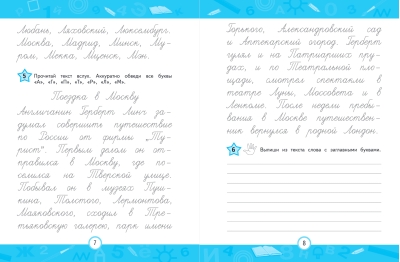 Любань, Ляховский, Люксембург.
Москва, Мадрид, Минск, Му-
ром, Мекка, Мценск, Мон.
5 Прочитай текст вслух. Аккуратно обведи все буквы
«А», «Г», «П», «Т», «Р», «Л», «М».
Поездка в Москву
Англичанин Герберт Линз за-
думал совершить путешествие
по России от фирмы „Ту-
рист“. Первым делом он от-
правился в Москву, где по-
селился на Тверской улице.
Побывал он в музеях Пуш-
кина, Толстого, Лермонтова,
Маяковского, сходил в Тре-
тьяковскую галерею, парк имени
7
Горького, Александровский сад
и Аптекарский огород. Герберт
гулял и на Патриарших пру-
дах, и по Театральной пло-
щади, смотрел спектакли в
театре Луны, Моссовета и в
Ленкоме. После недели пребы-
вания в Москве путешествен-
ник вернулся в родной Лондон.
6 Выпиши из текста слова с заглавными буквами.
8